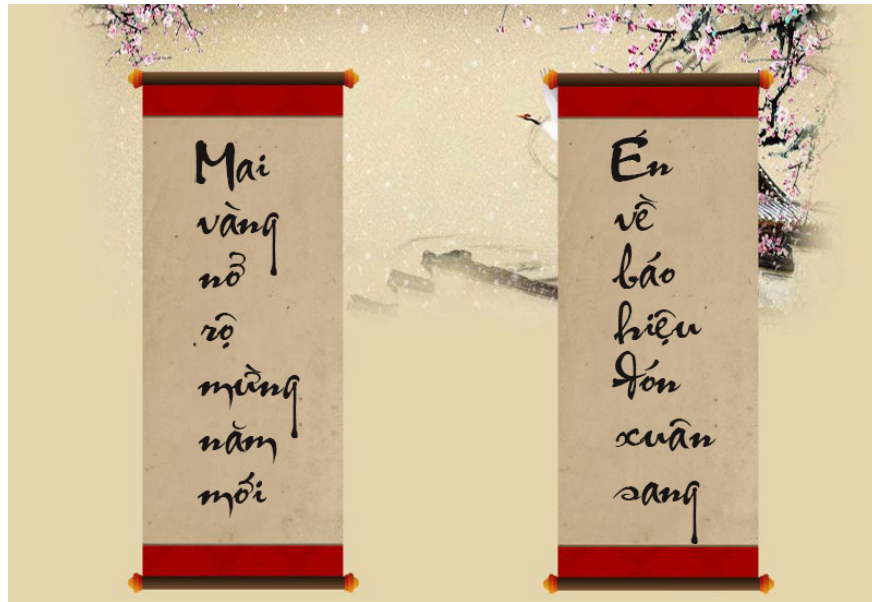 Mai
vàng
nở
rộ
mừng
năm
mới
Én
về
báo
hiệu
đón
xuân
sang